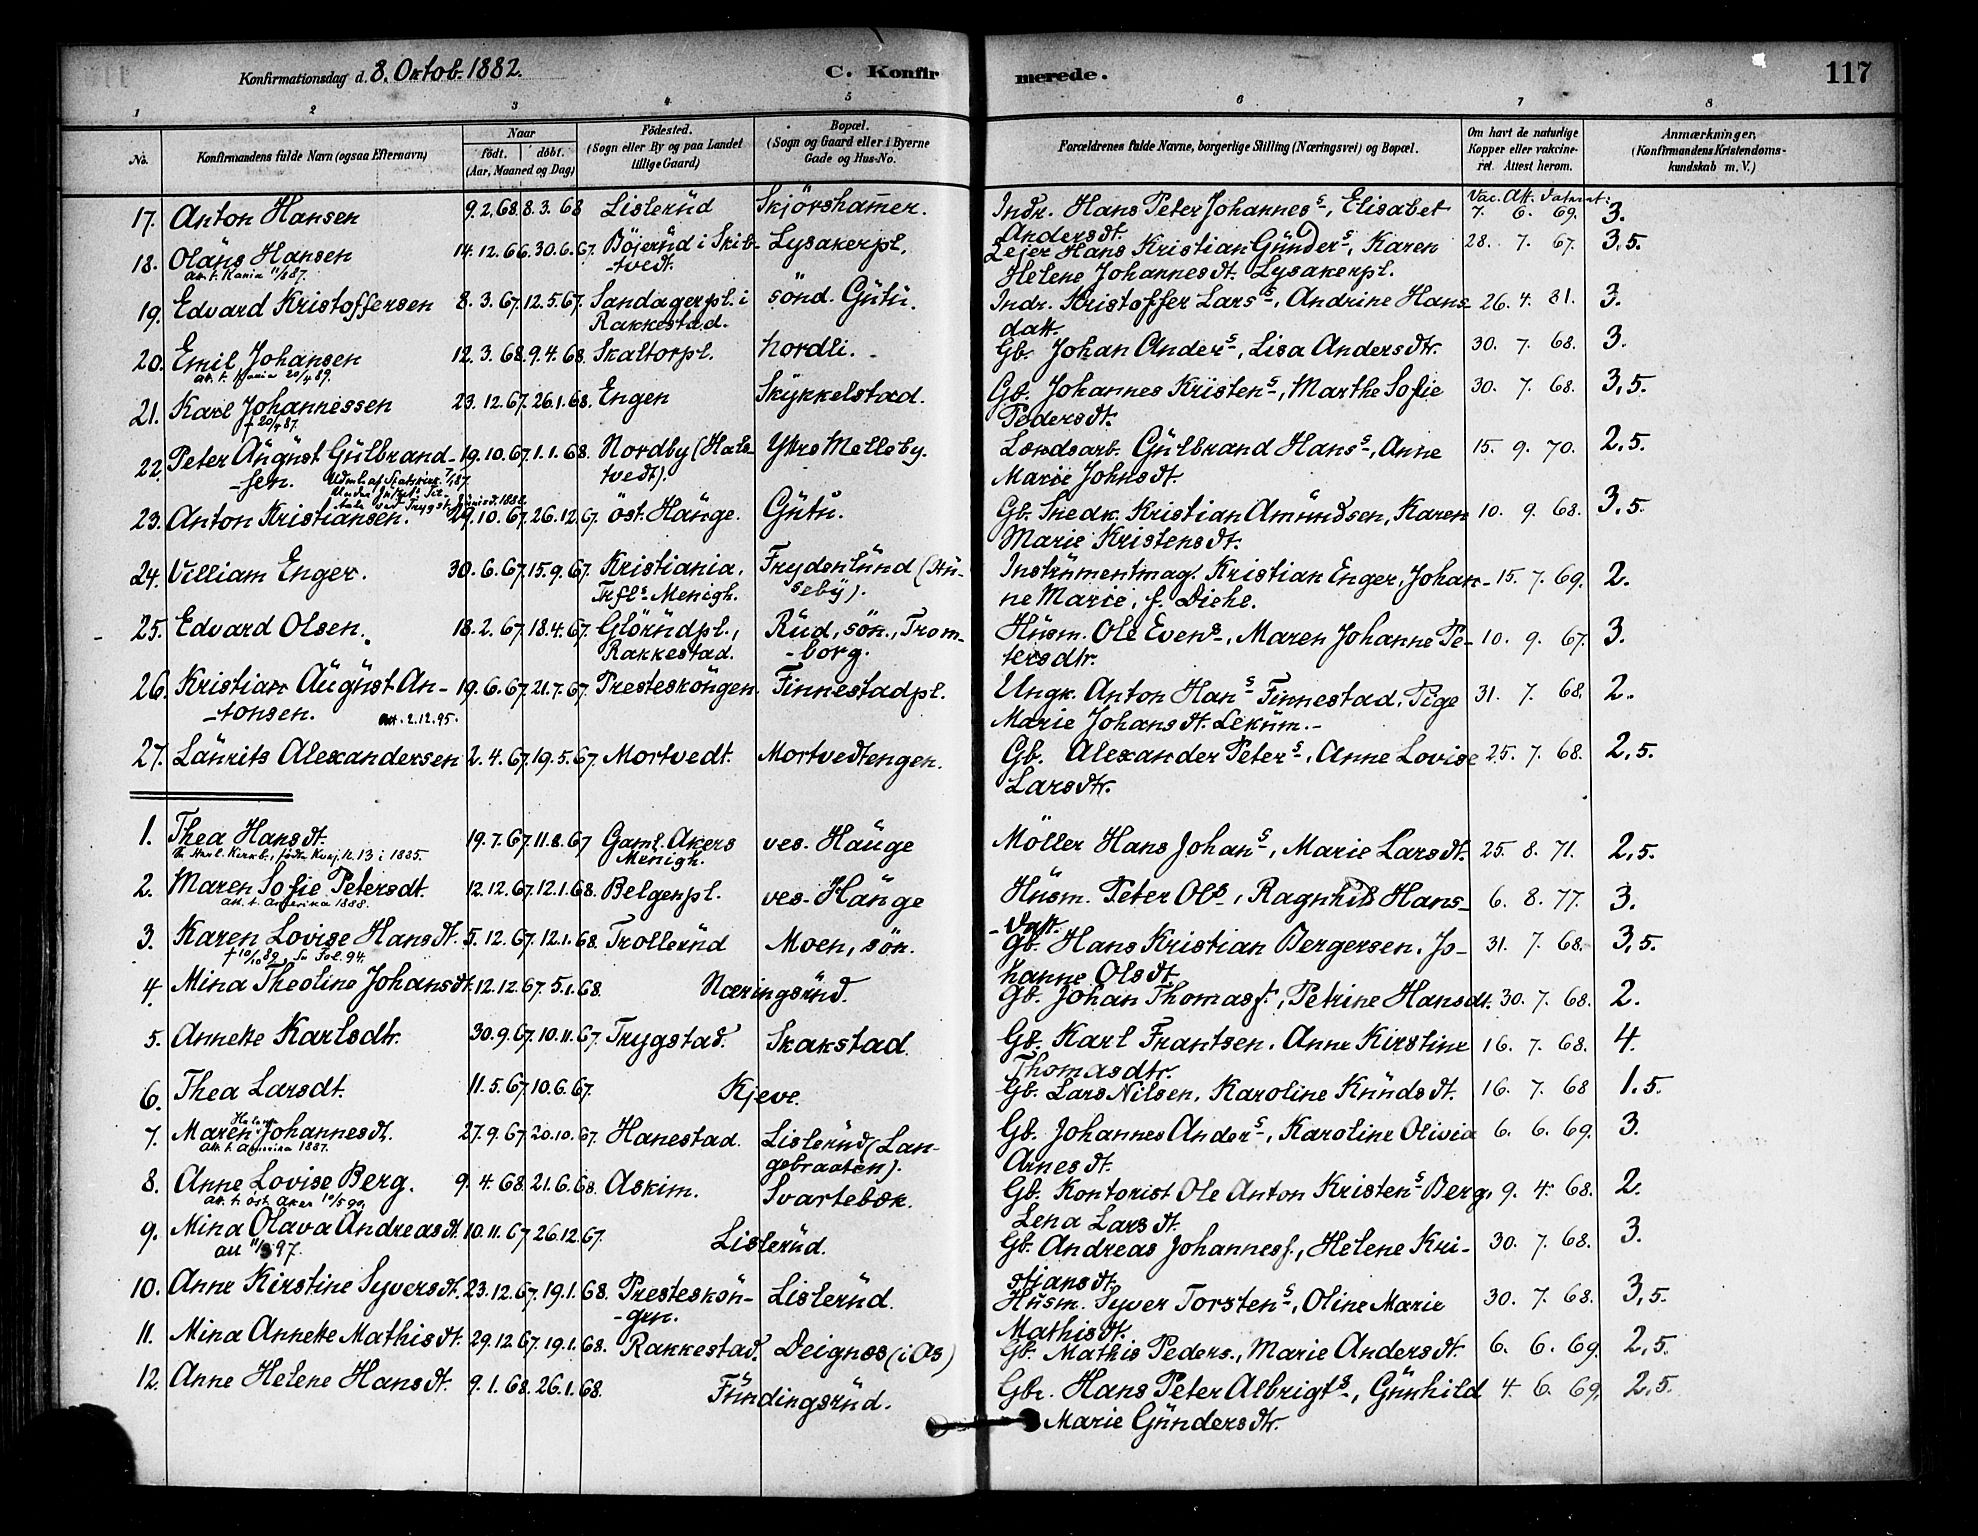 Konfirmationsdag d. 8. Oktob. 1882. C. Konfirmerede. 117
1 2 3 4 5 6 7 8
No. Konfirmandens fulde Navn (ogsaa Efternavn) Naar født. døbt. (Aar, Maaned og Dag) Fødested. (Sogn eller By og paa Landet tillige Gaard) Bopæl. (Sogn og Gaard eller i Byerne Gade og Hus-No. Forældrenes fulde Navne, borgerlige Stilling (Næringsvei) og Bopæl. Om havt de naturlige Kopper eller vakcineret. Attest herom. Anmærkninger, (Konfirmandens Kristendomskundskab m. V.)
17. Anton Hansen 9.2.68. 8.3.68 Lislerüd Skjörshamer. Indr. Hans Peter Johannesˢ, Elisabet Vac. Att. Datum: 7. 6. 69. 3.
Andersdt.
18. Olaüs Hansen 14.12.66. 30.6.67. Böjerüd i Skib- Lysakerpl. Lejer Hans Kristian Günderˢ, Karen 28. 7. 67. 3,5.
att. t. Kania 11/4 87. -tvedt. Helene Johannesdt. Lysakerpl.
19. Edvard Kristoffersen 8.3.67. 12.5.67. Sandagerpl. i sönd. Gütü. Indr. Kristoffer Larsˢ, Andrine Hans- 26. 4. 81. 3.
Rakkestad. datt.
20. Emil Johansen 12.3.68. 9.4.68. Skaltorpl. Nordli. Gb. Johan Anderˢ, Lisa Andersdtr. 30. 7. 68. 3.
att. t. Kania 20/4 89.
21. Karl Johannessen 23.12.67. 26.1.68. Engen Skykkelstad. Gb. Johannes Kristenˢ, Marthe Sofie 30. 7. 68. 3,5.
† 20/4 87. Pedersdt.
22. Peter Aügüst Gülbrand- 19.10.67. 1.1.68. Nordby (Hale- Ytre Melleby. Landsarb. Gülbrand Hansˢ, Anne 15. 9. 70. 2,5.
-sen. tvedt). Marie Johnsdt.
23. Anton Kristiansen. 29.10.67. 26.12.67. öst. Haüge. Gütü. Gb. Snedk. Kristian Amündsen, Karen 10. 9. 68. 3,5.
Marie Kristensdt.
24. Villiam Enger. 30.6.67. 15.9.67. Kristiania, Frydenlünd (Hü- Instrümentmag. Kristian Enger, Johan- 15. 7. 69. 2.
Trflˢ Menigh. seby). ne Marie, f. Diehe.
25. Edvard Olsen. 18.2.67. 18.4.67. Glörüdpl., Rüd, sön., Trom- Hüsm. Ole Evenˢ, Maren Johanne Pe- 10. 9. 67. 3.
Rakkestad. -borg. tersdtr.
26. Kristian Aügüst An- 19.6.67. 21.7.67. Presteskoüngen. Finnestadpl. Ungk. Anton Hanˢ Finnestad, Pige 31. 7. 68. 2.
-tonsen. att. 2.12.95. Marie Johansdt. Leküm.-
27. Laürits Alexandersen 2.4.67. 19.5.67. Mortvedt. Mortvedtengen. Gb. Alexander Peterˢ, Anne Lovise 25. 7. 68. 2,5.
Larsdtr.
1. Thea Hansdt. 19.7.67. 11.8.67 Gaml. Akers ves. Haüge Möller Hans Johanˢ, Marie Larsdt. 25. 8. 71. 2,5.
Menigh.
2. Maren Sofie Petersdt. 12.12.67. 12.1.68. Belgenpl. ves. Haüge Hüsm. Peter Olˢ, Ragnhild Hans- 6. 8. 77. 3.
att. t. Amerika 1888. -datt.
3. Karen Lovise Hansdt. 5.12.67. 12.1.68. Trollerüd Moen, sön. Gb. Hans Kristian Bergersen, Jo- 31. 7. 68. 3,5.
† 10/10 89, Se Fol. 94. hanne Olsdt.
4. Mina Theoline Johansdt. 12.12.67. 5.1.68. Næringsrüd. Gb. Johan Thomasſ., Petrine Hansdt. 30. 7. 68. 2.
5. Annette Karlsdtr. 30.9.67. 10.11.67. Trygstad. Skakstad. Gb. Karl Frantsen, Anne Kirstine 16. 7. 68. 4.
Thomasdtr.
6. Thea Larsdt. 11.5.67. 10.6.67. Kjeve. Gb. Lars Nilsen, Karoline Knüdsdt. 16. 7. 68 1.5.
7. Maren Helene Johannesdt. 27.9.67. 20.10.67. Hanestad. Lislerüd (Lan- Gb. Johannes Anderˢ, Karoline Olivia 6. 6. 69. 3.
att. t. Amerika 1887. gebraaten). Arnesdt.
8. Anne Lovise Berg. 9.4.68. 21.6.68. Askim. Svartebæk. Gb. Kontorist Ole Anton Kristenˢ Berg, 9. 4. 68. 2.
att. t. öst. Aker 10/5 90. Lena Larsdt.
9. Mina Olava Andreasdt. 10.11.67. 26.12.67. Lislerüd. Gb. Andreas Johannesſ., Helene Kri- 30. 7. 68. 3.
stiansdt.
10. Anne Kirstine Syversdt. 23.12.67. 19.1.68. Presteskoün- Lislerüd. Hüsm. Syver Torstenˢ, Oline Marie 30. 7. 68. 3,5.
-gen. Mathisdt.
11. Mina Annette Mathisdt. 29.12.67. 19.1.68. Rakkestad. Deignæs (i Os) Gb. Mathis Peders., Marie Andersdt. 6. 6. 69. 2,5.
12. Anne Helene Hansdt. 9.1.68. 26.1.68. Fündingsrüd. Gbr. Hans Peter Albrigtˢ, Günhild 4. 6. 69. 2,5.
Marie Gündersdtr.